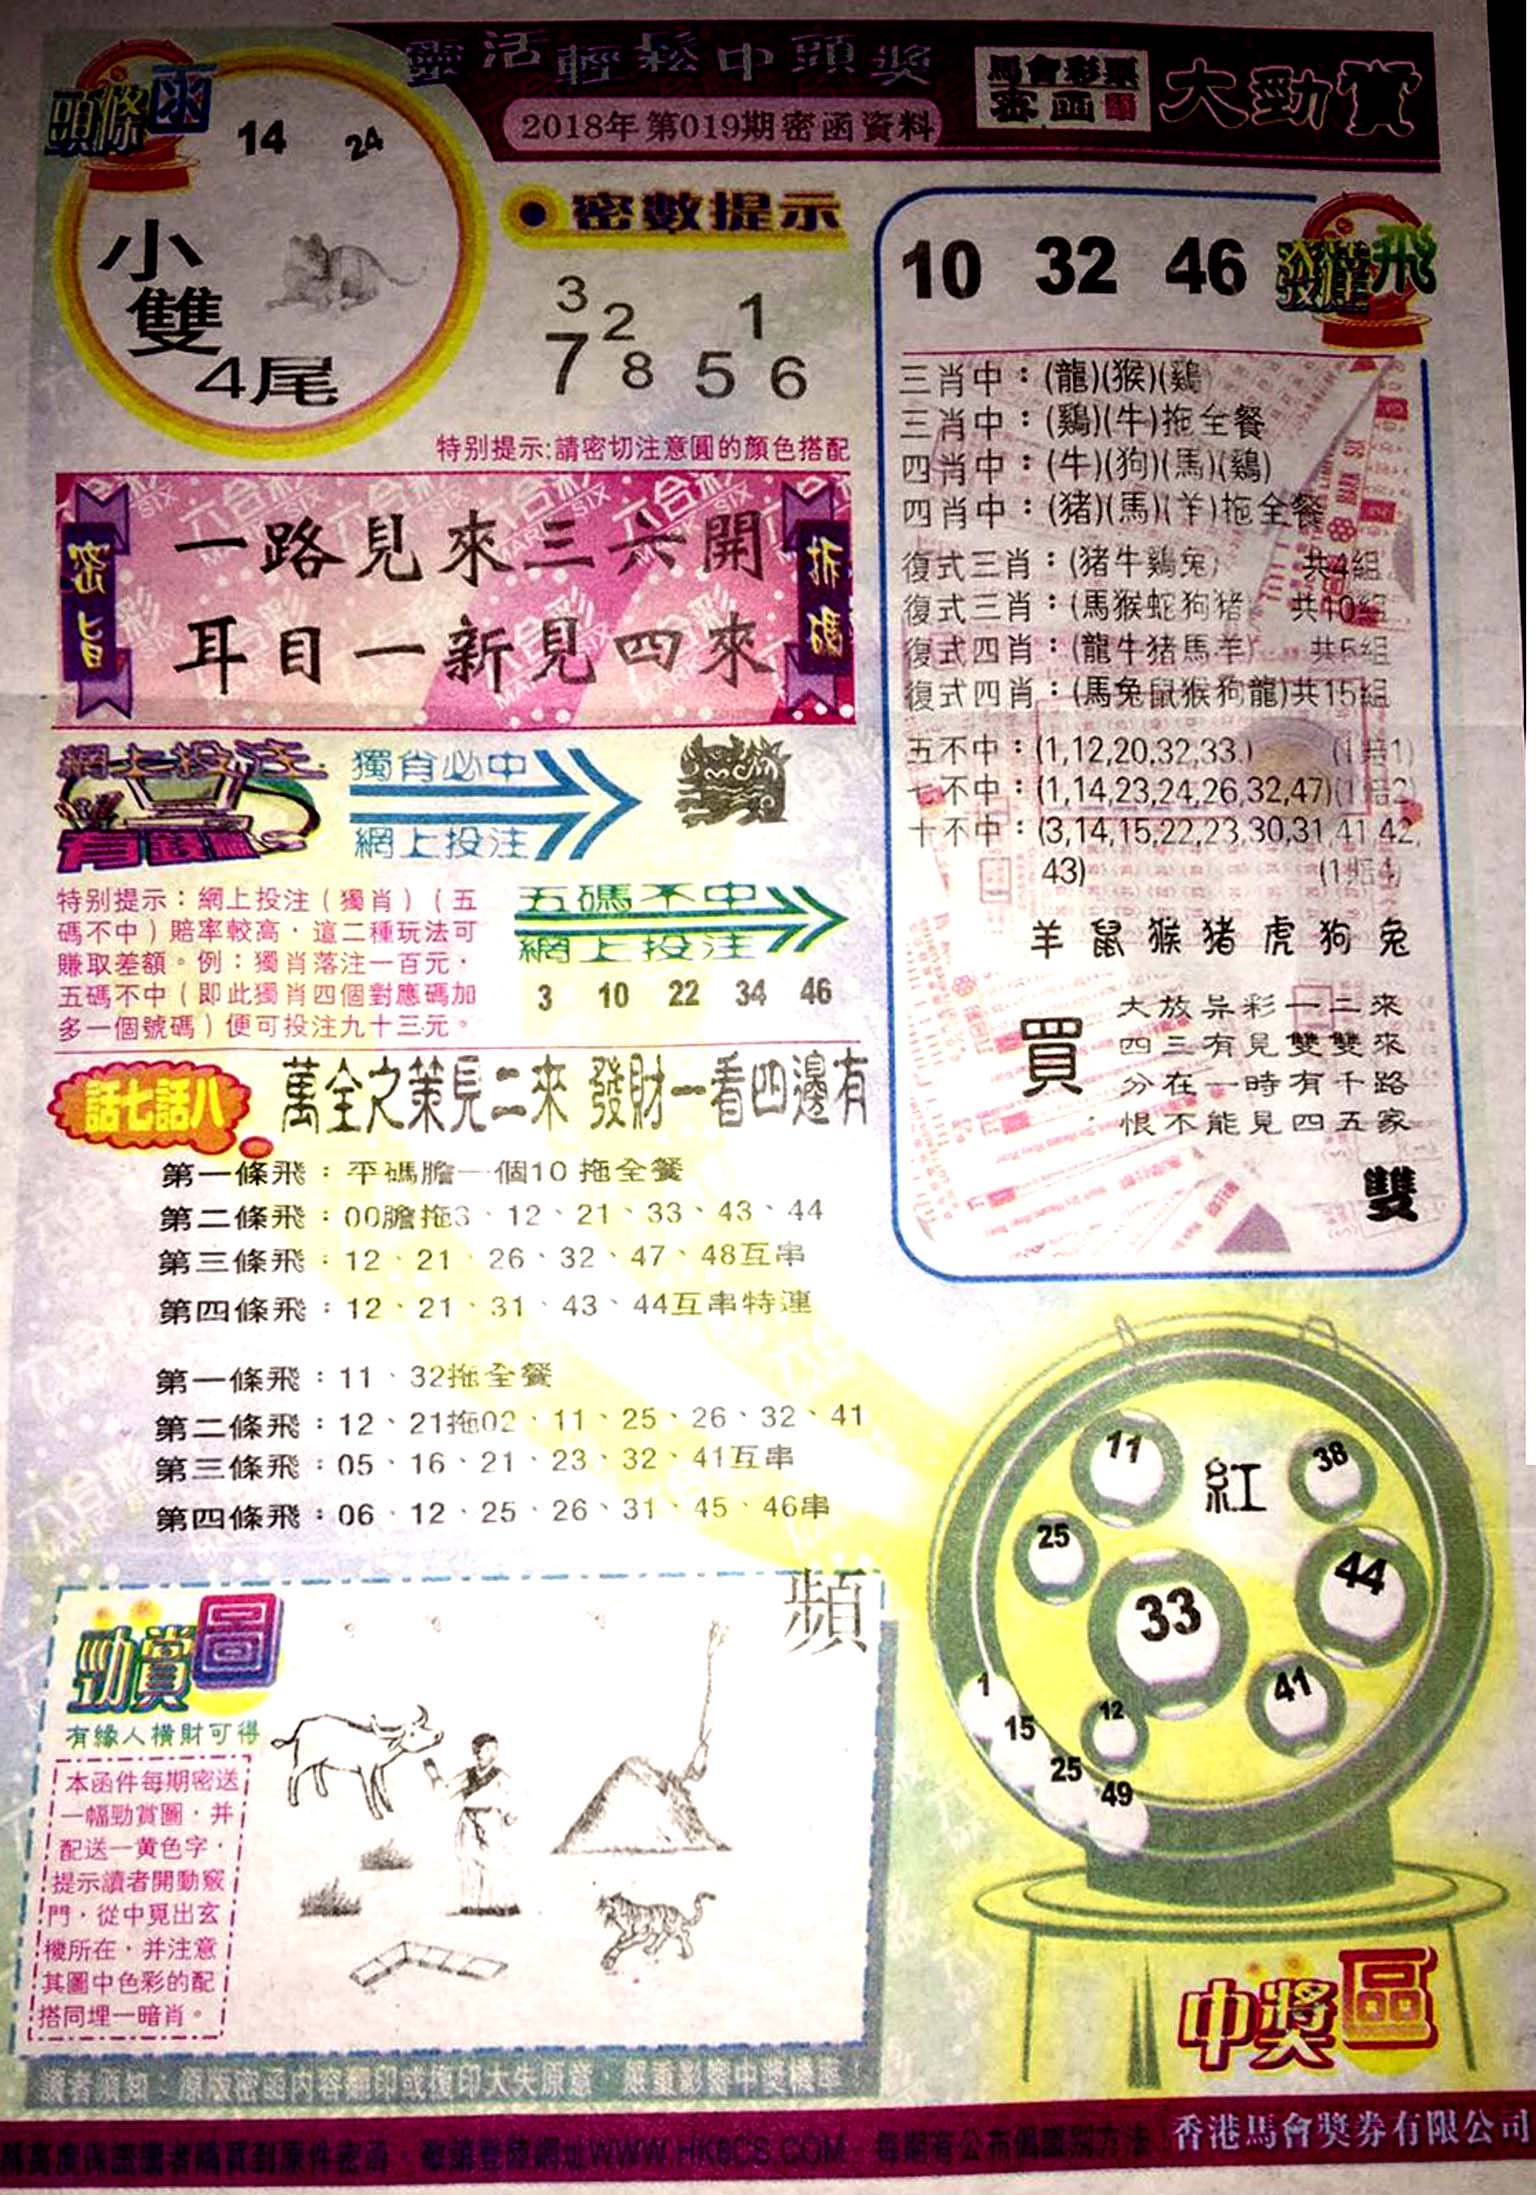 靈活輕鬆中頭獎
2018年第019期密函資料
馬會彩票
密函
大勁賞
頭條函
14 24
小
雙
4尾
密數提示
3 2 1
7 8 5 6
特别提示:請密切注意圓的顏色搭配
密旨
一路見來三六開
耳目一新見四來
拆碼
網上投注
獨肖必中
網上投注
特别提示：網上投注（獨肖）（五
碼不中）賠率較高，這二種玩法可
賺取差額。例：獨肖落注一百元，
五碼不中（即此獨肖四個對應碼加
多一個號碼）便可投注九十三元。
五碼不中
網上投注
3 10 22 34 46
話七話八
萬全之策見二來 發財一看四邊有
第一條飛：平碼膽一個10 拖全餐
第二條飛：00膽拖3、12、21、33、43、44
第三條飛：12、21、26、32、47、48互串
第四條飛：12、21、31、43、44互串特連
第一條飛：11、32拖全餐
第二條飛：12、21拖02、11、25、26、32、41
第三條飛：05、16、21、23、32、41互串
第四條飛：06、12、25、26、31、45、46串
10 32 46
發達飛
三肖中：(龍)(猴)(鷄)
三肖中：(鷄)(牛)拖全餐
四肖中：(牛)(狗)(馬)(鷄)
四肖中：(猪)(馬)(羊)拖全餐
復式三肖：(猪牛鷄兔) 共4組
復式三肖：(馬猴蛇狗猪) 共10組
復式四肖：(龍牛猪馬羊) 共5組
復式四肖：(馬兔鼠猴狗龍)共15組
五不中：(1,12,20,32,33.) (1賠1)
七不中：(1,14,23,24,26,32,47)(1賠2)
十不中：(3,14,15,22,23,30,31,41,42,
43) (1賠4)
羊鼠猴猪虎狗兔
買
大放异彩一二來
四三有見雙雙來
分在一時有千路
恨不能見四五家
雙
勁賞圖
有緣人橫財可得
本函件每期密送
一幅勁賞圖，并
配送一黄色字，
提示讀者開動竅
門，從中覓出玄
機所在，并注意
其圖中色彩的配
搭同埋一暗肖。
頻
11
紅
38
25
44
33
41
12
1
15
25
49
中獎區
讀者須知：原版密函内容翻印或復印大失原意，嚴重影響中獎機率！
WWW.HK6CS.COM
香港馬會獎券有限公司